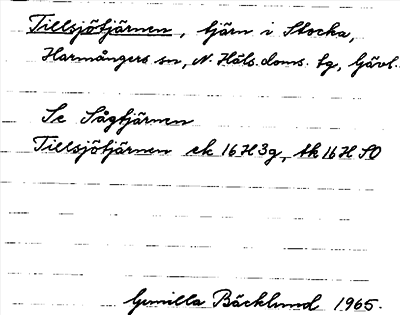 Tillsjötjärnen, tjärn i Stocka,
Harmångers sn, N. Häls. doms. tg, Gävl.
Se Sågtjärnen
Tillsjötjärnen ek 16H3g, tk 16H SO
Gunilla Bäcklund 1965.